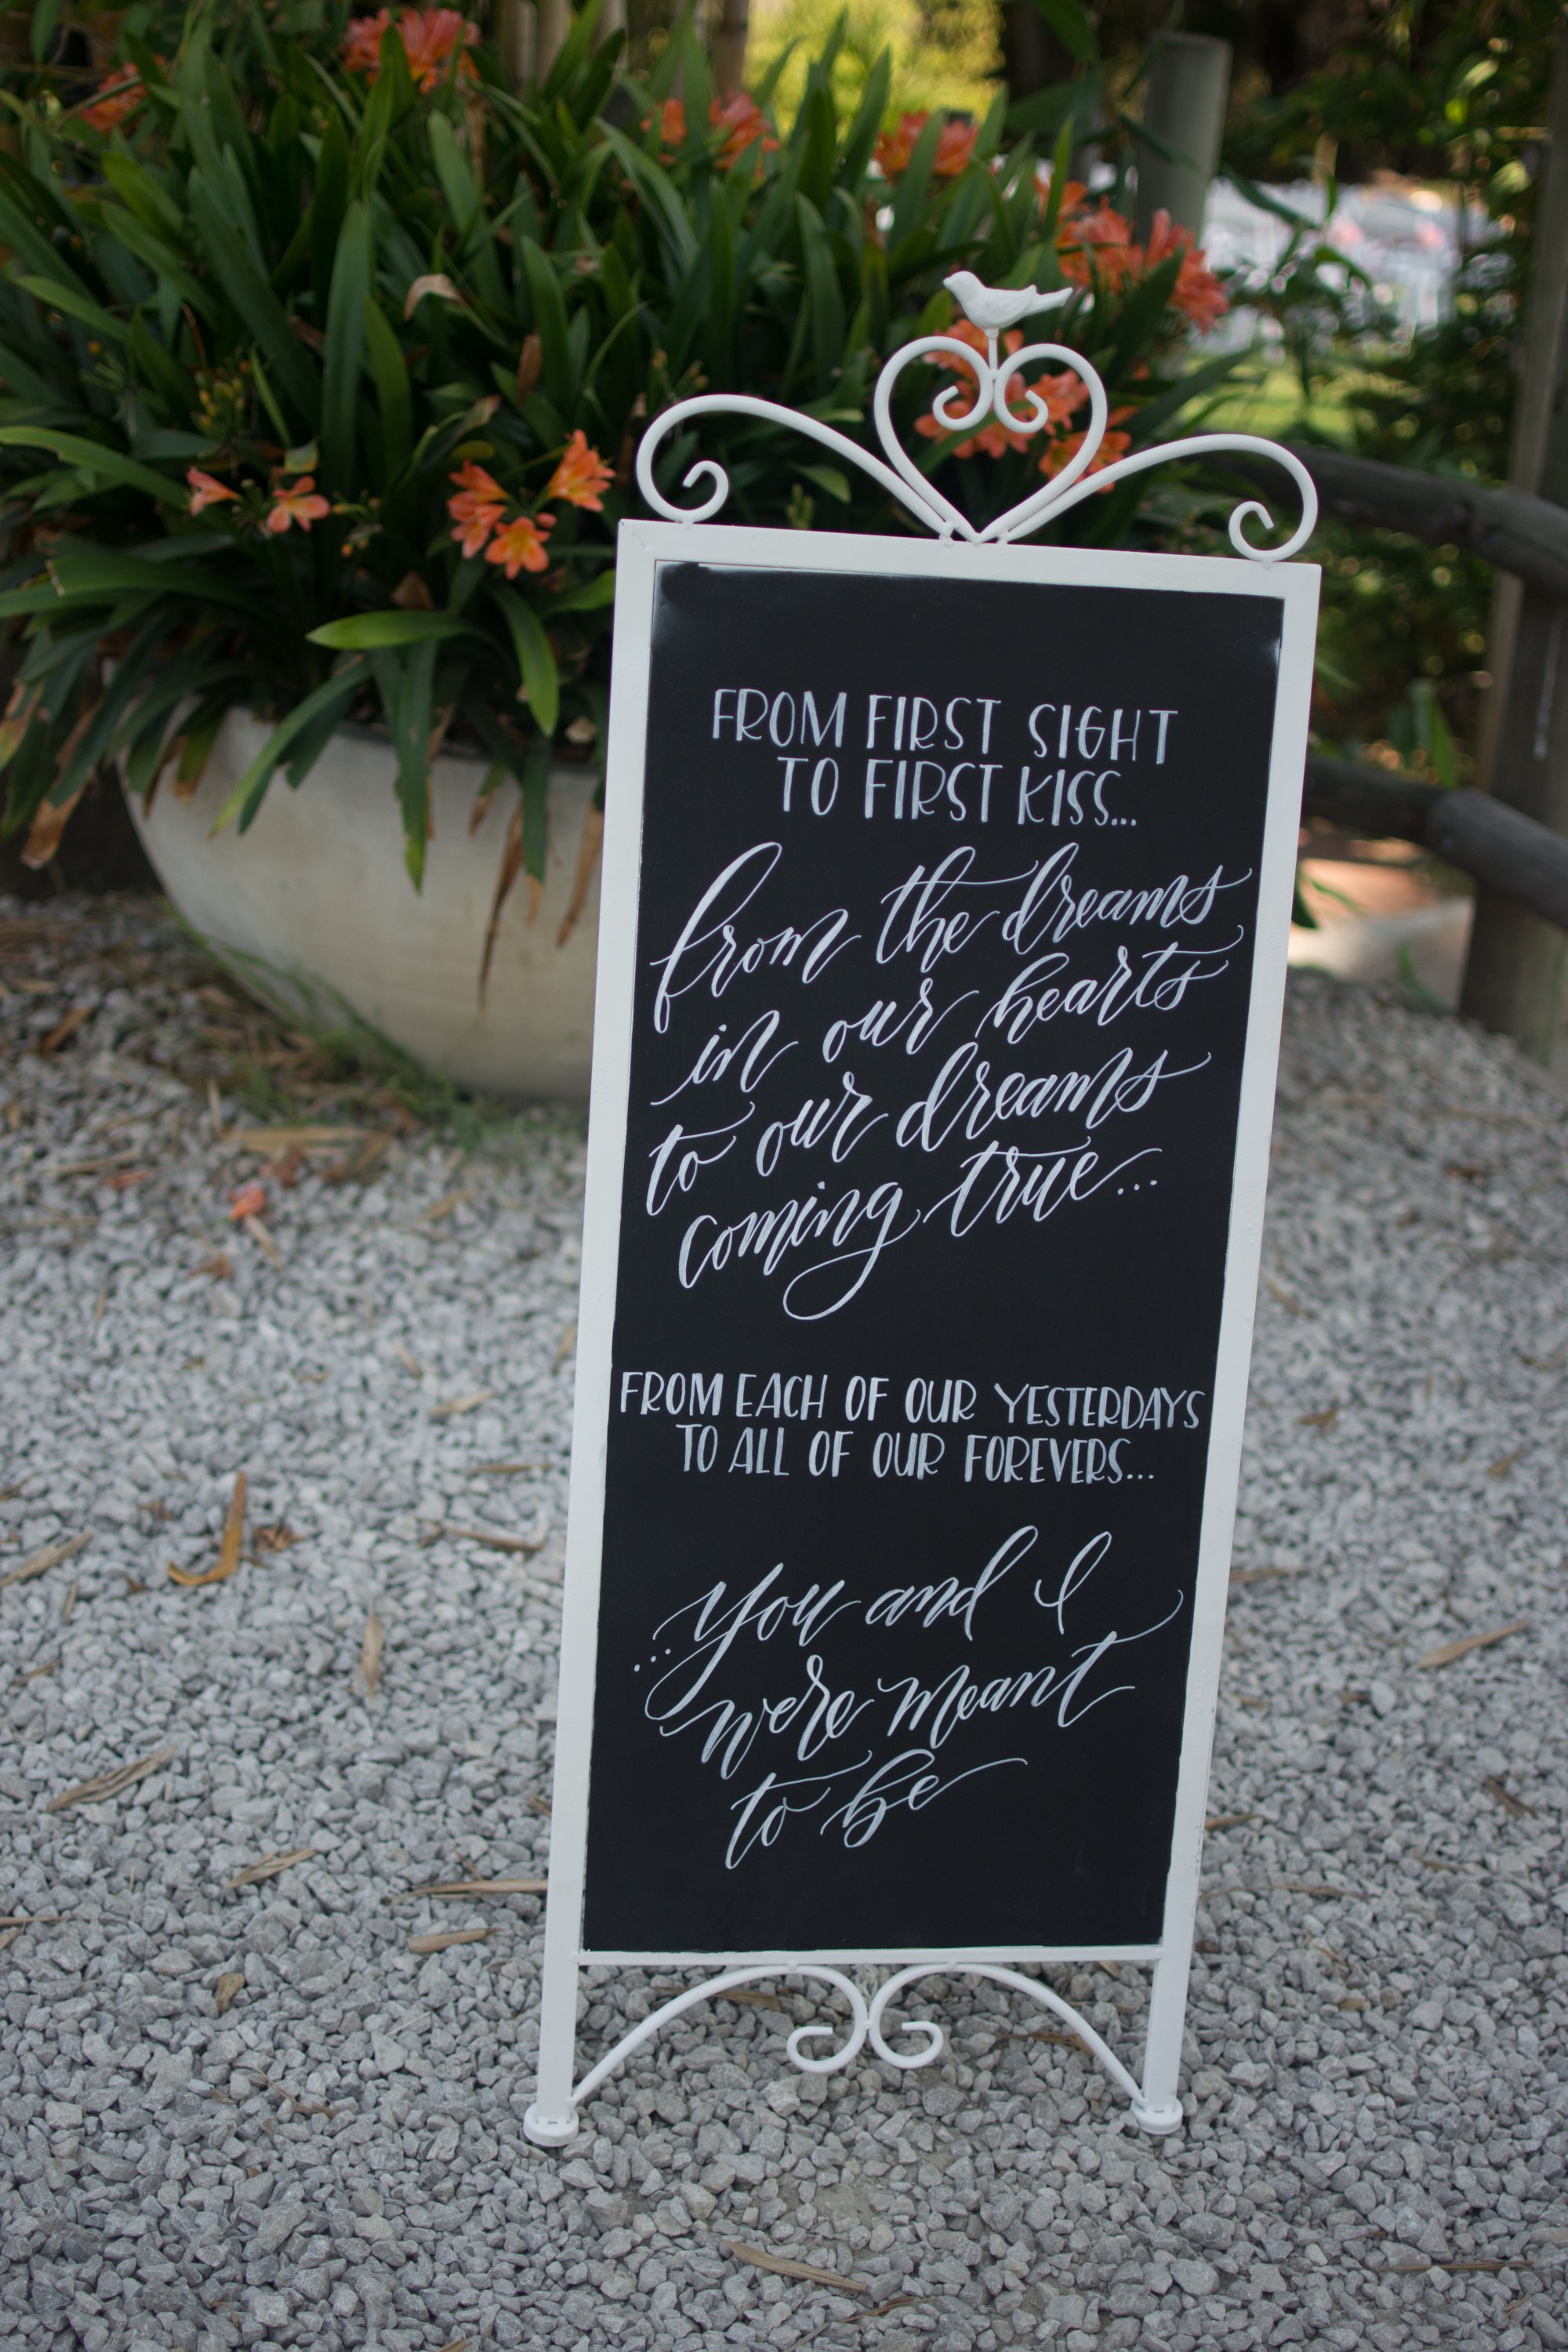 FROM FIRST SIGHT
TO FIRST KISS...
from the dreams
in our hearts
to our dreams
coming true...
FROM EACH OF OUR YESTERDAYS
TO ALL OF OUR FOREVERS...
...You and I
were meant
to be